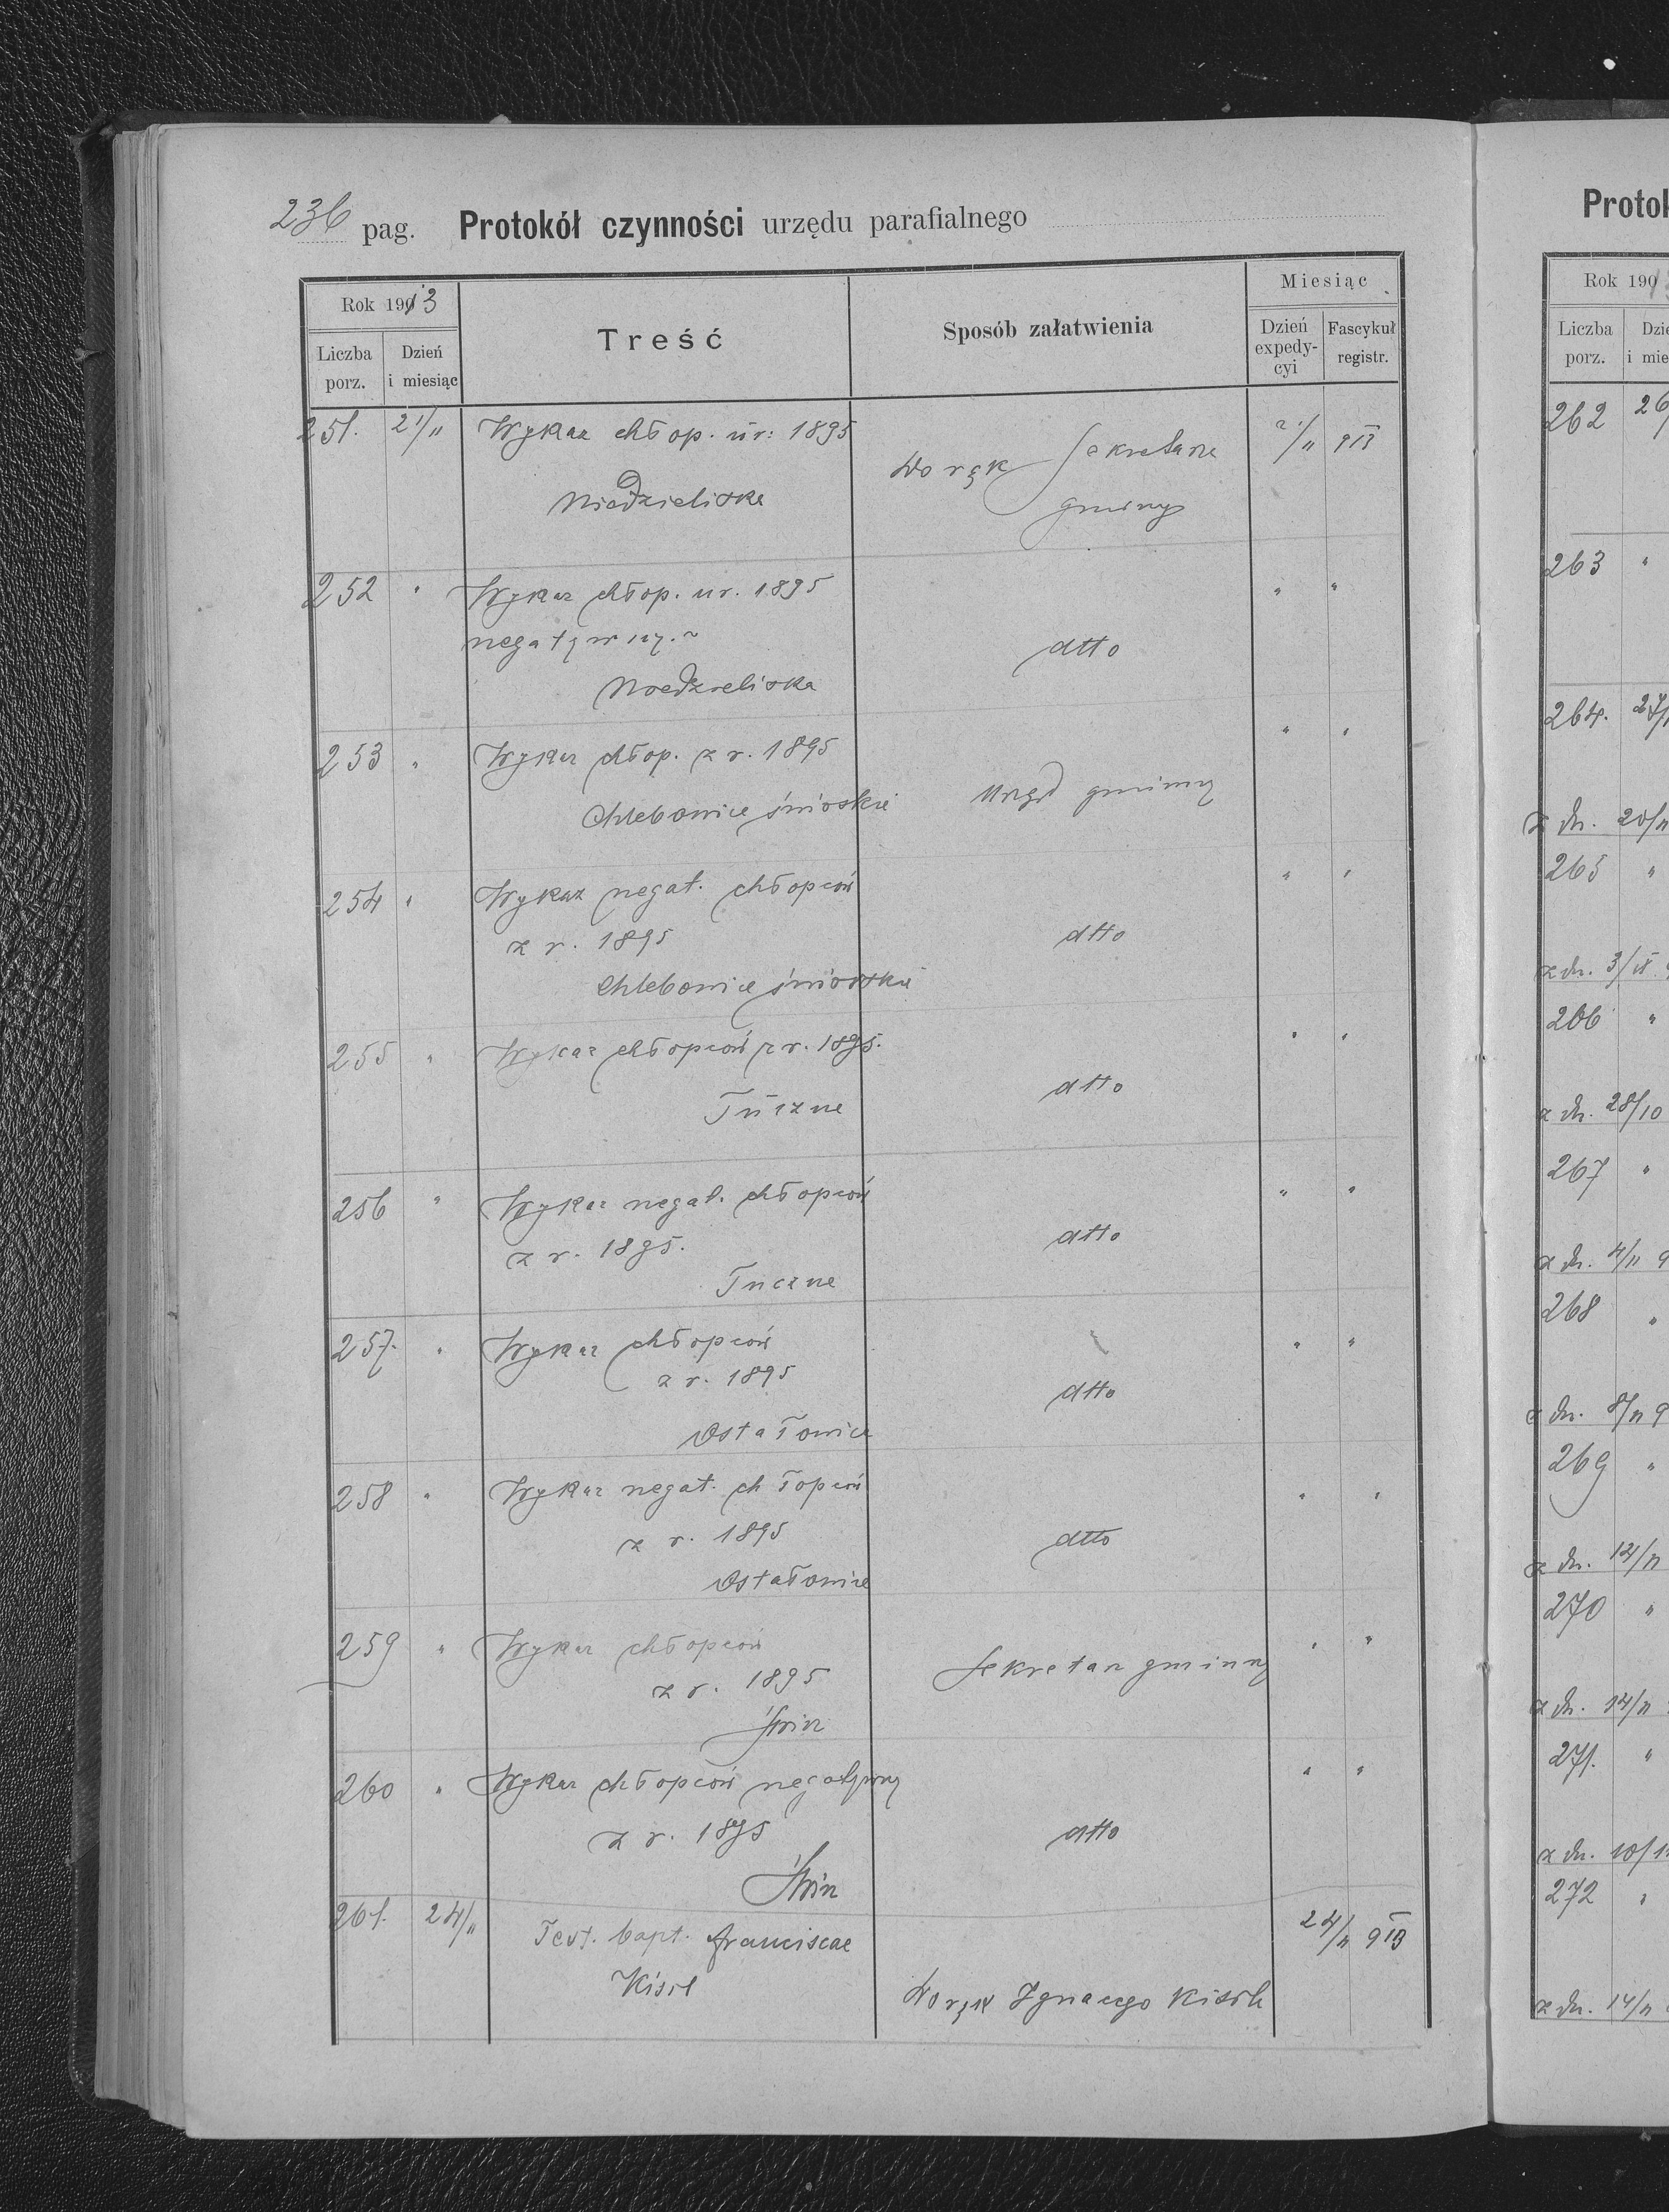 236 pag. Protokół czynności urzędu parafialnego
Rok 1913
Liczba porz.
Dzień i miesiąc
Treść
Sposób załatwienia
Miesiąc
Dzień expedycyi
Fascykuł registr.
251. 21/11 Wykaz chłop. ur: 1895
Niedzieliska
Do rąk Sekretarza
gminy
21/11 913
252 " Wykaz chłop. ur. 1895 " "
negatywny
Niedzieliska
dtto
253 " Wykaz chłop. z r. 1895 " "
Chlebowice świrskie
Urząd gminny
254 " Wykaz negat. chłopców " "
z r. 1895
dtto
Chlebowice świrskie
255 " Wykaz chłopców z r. 1895. " "
Tuczne
dtto
256 " Wykaz negat. chłopców " "
z r. 1895.
dtto
Tuczne
257. " Wykaz chłopców " "
z r. 1895
dtto
Ostałowice
258 " Wykaz negat. chłopców " "
z r. 1895
dtto
Ostałowice
259 " Wykaz chłopców " "
z r. 1895
Sekretarz gminny
Świrz
260 " Wykaz chłopców negatywny " "
z r. 1895
dtto
Świrz
261. 24/11 Test. bapt. Franciscae 24/11 913
Kisil
Do rąk Ignacego Kisila
Protok
Rok 190
Liczba porz.
Dzie
i mie
262 26/
263 "
264. 27/
z dn. 20/11
265 "
z dn. 3/
266 "
z dn. 28/10
267 "
z dn. 4/11 9
268 "
z dn. 8/11 9
269 "
z dn. 12/11
270 "
z dn. 14/11
271. "
z dn. 10/11
272 "
z dn. 14/11